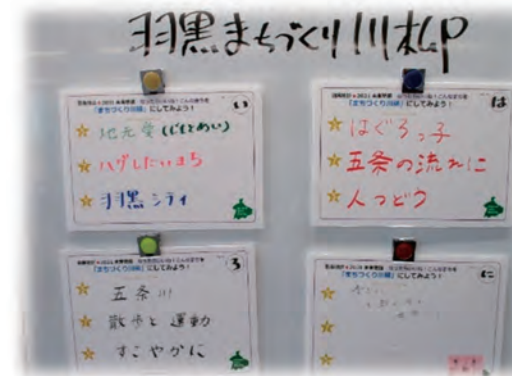 羽黒まちづくり川柳
「まちづくり川柳」にしてみよう!
い
地元愛(じもとめい)
ハグしたいまち
羽黒シティ
「まちづくり川柳」にしてみよう!
は
はぐろっ子
五条の流れに
人つどう
「まちづくり川柳」にしてみよう!
ろ
五条川
散歩と運動
すこやかに
「まちづくり川柳」にしてみよう!
に